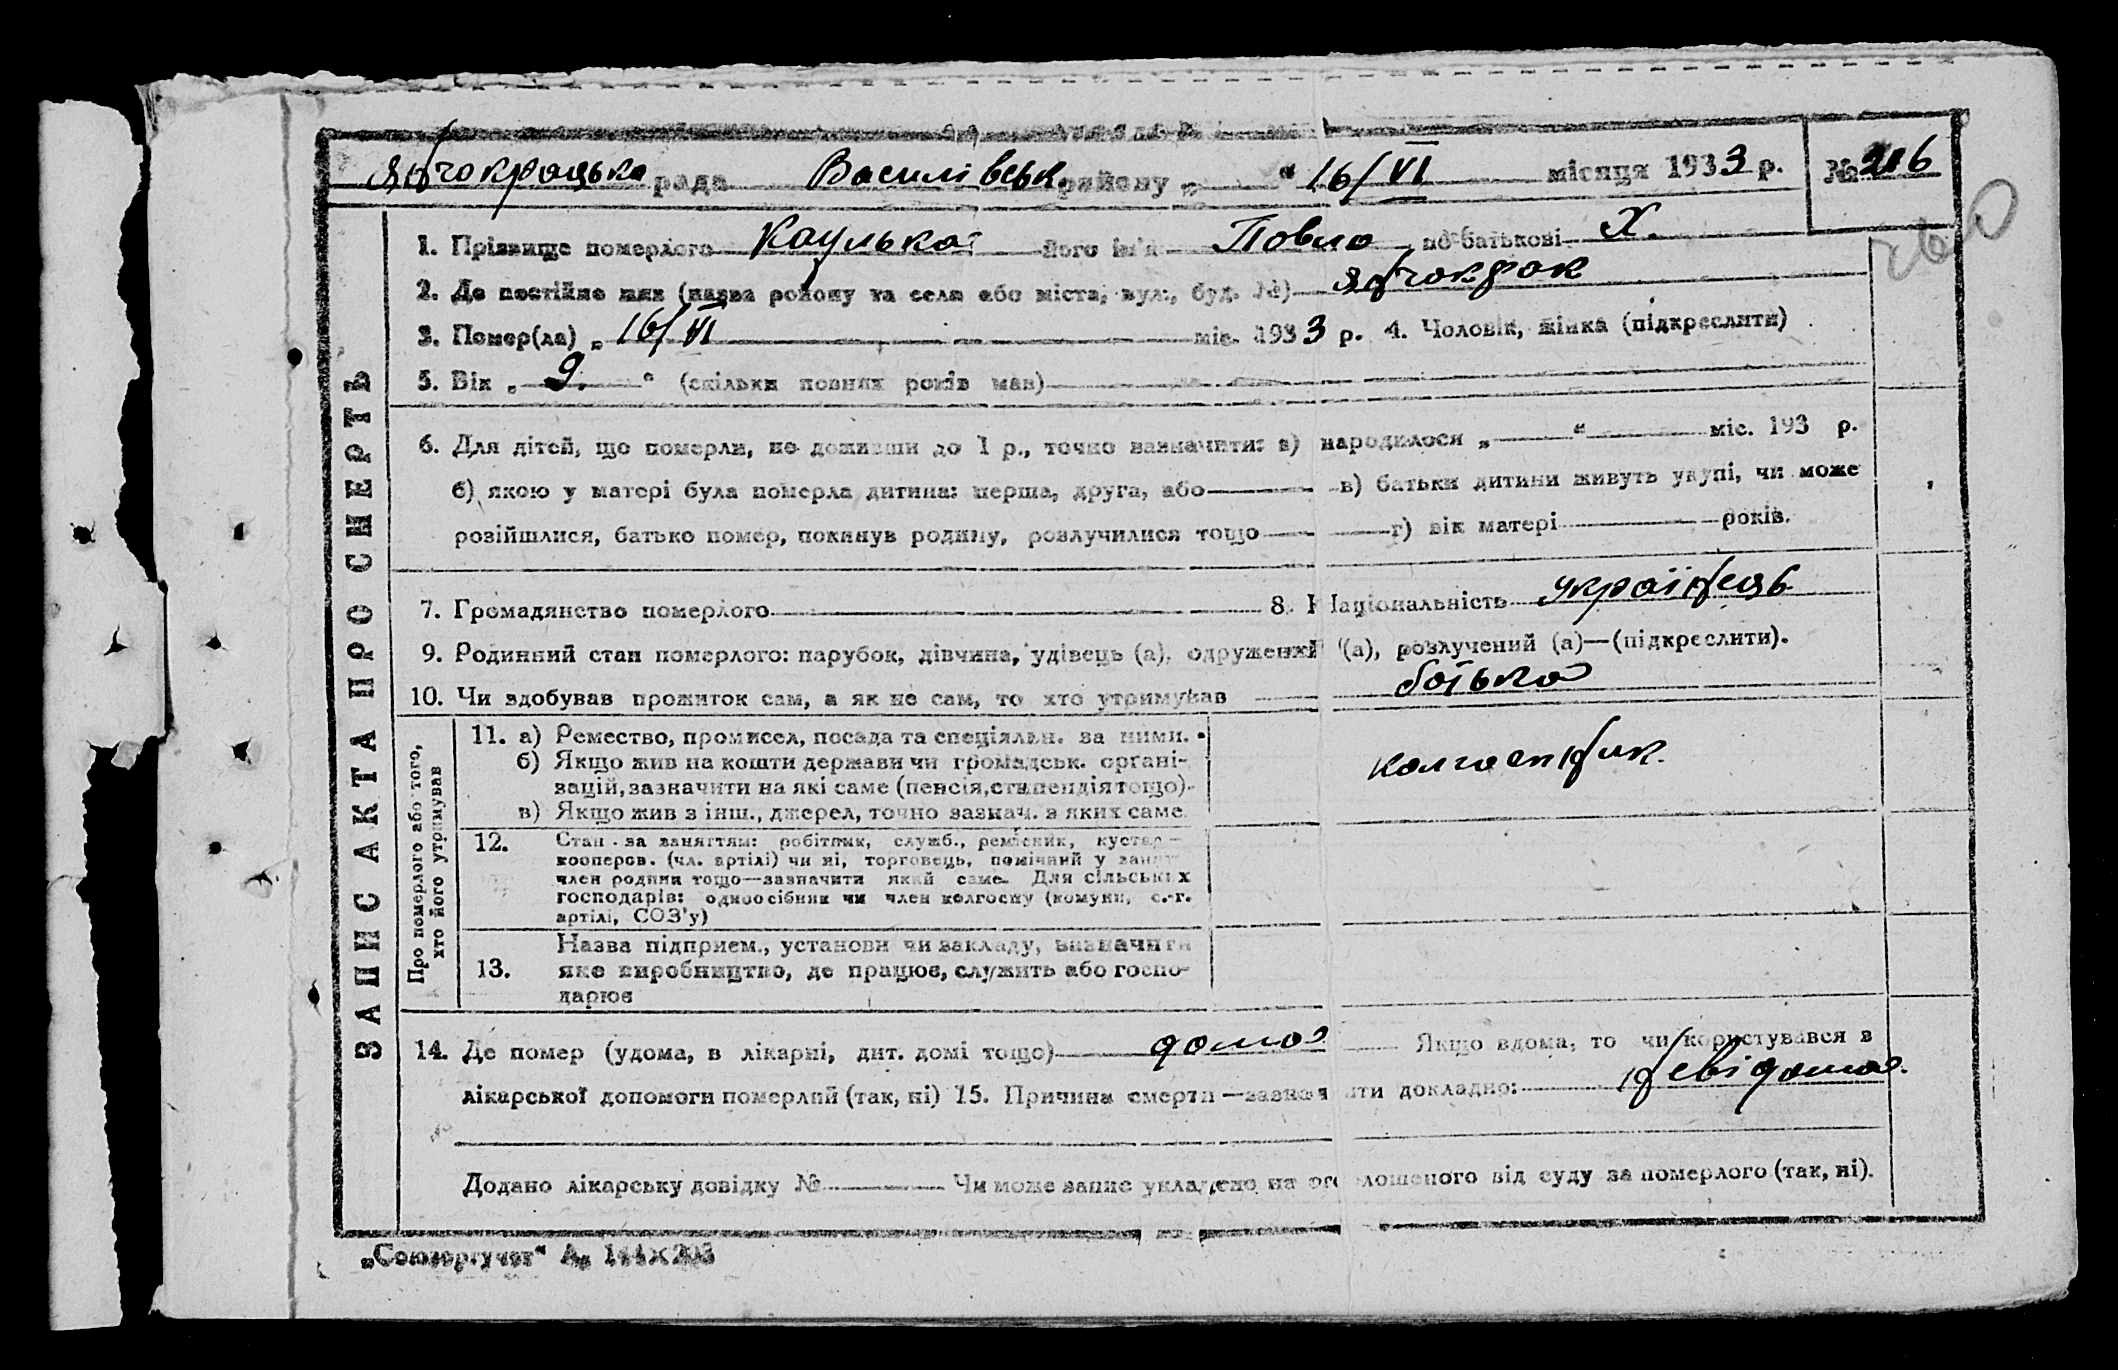 Яблокрацька рада Василівськ району „ “ 16/VI місяця 1933 р. № 216
260
ЗАПИС АКТА ПРО СМЕРТЬ
1. Прізвище померлого його ім'я Повло, по батькові Х.
2. Де постійно жив (назва району та села або міста, вул., буд. №) Яблокрак
3. Помер(ла) „ 16/VI міс. 1933 р. 4. Чоловік, жінка (підкреслити)
5. Вік „ 9. “ (скільки повних років мав)
6. Для дітей, що померли, не доживши до 1 р., точно вазначити: а) народилося „ “ міс. 193 р.
б) якою у матері була померла дитина: перша, друга, або в) батьки дитини живуть укупі, чи може
розійшлися, батько помер, покинув родину, розлучилися тощо г) вік матері років.
7. Громадянство померлого 8. Національність українець
9. Родинний стан померлого: парубок, дівчина, удівець (а), одружений (а), розлучений (а)—(підкреслити).
10. Чи здобував прожиток сам, а як не сам, то хто утримував батько
Про померлого або того, хто його утримував
11. а) Ремество, промисел, посада та спеціяльн. за ними.
б) Якщо жив на кошти держави чи громадськ. органі-
зацій, зазначити на які саме (пенсія, стипендія тощо)
в) Якщо жив з інш., джерел, точно зазнач. з яких саме
колгоспник.
12. Стан за заняттям: робітник, служб., ремісник, кустар—
кооперов. (чл. артілі) чи ні, торговець, помічний у
член родини тощо—зазначити який саме. Для сільських
господарів: одноосібник чи член колгоспу (комуни, с.-г.
артілі, СОЗ'у)
13. Назва підприєм., установи чи закладу, визначити
яке виробництво, де працює, служить або госпо-
дарює
14. Де помер (удома, в лікарні, дит. домі тощо) дома Якщо вдома, то чи користувався в
лікарської допомоги померлий (так, ні) 15. Причина смерти—зазначити докладно: невідома.
Додано лікарську довідку № Чи може запис укладено на оголошеного від суду за померлого (так, ні).
„Союзоргучет“ А 144×203